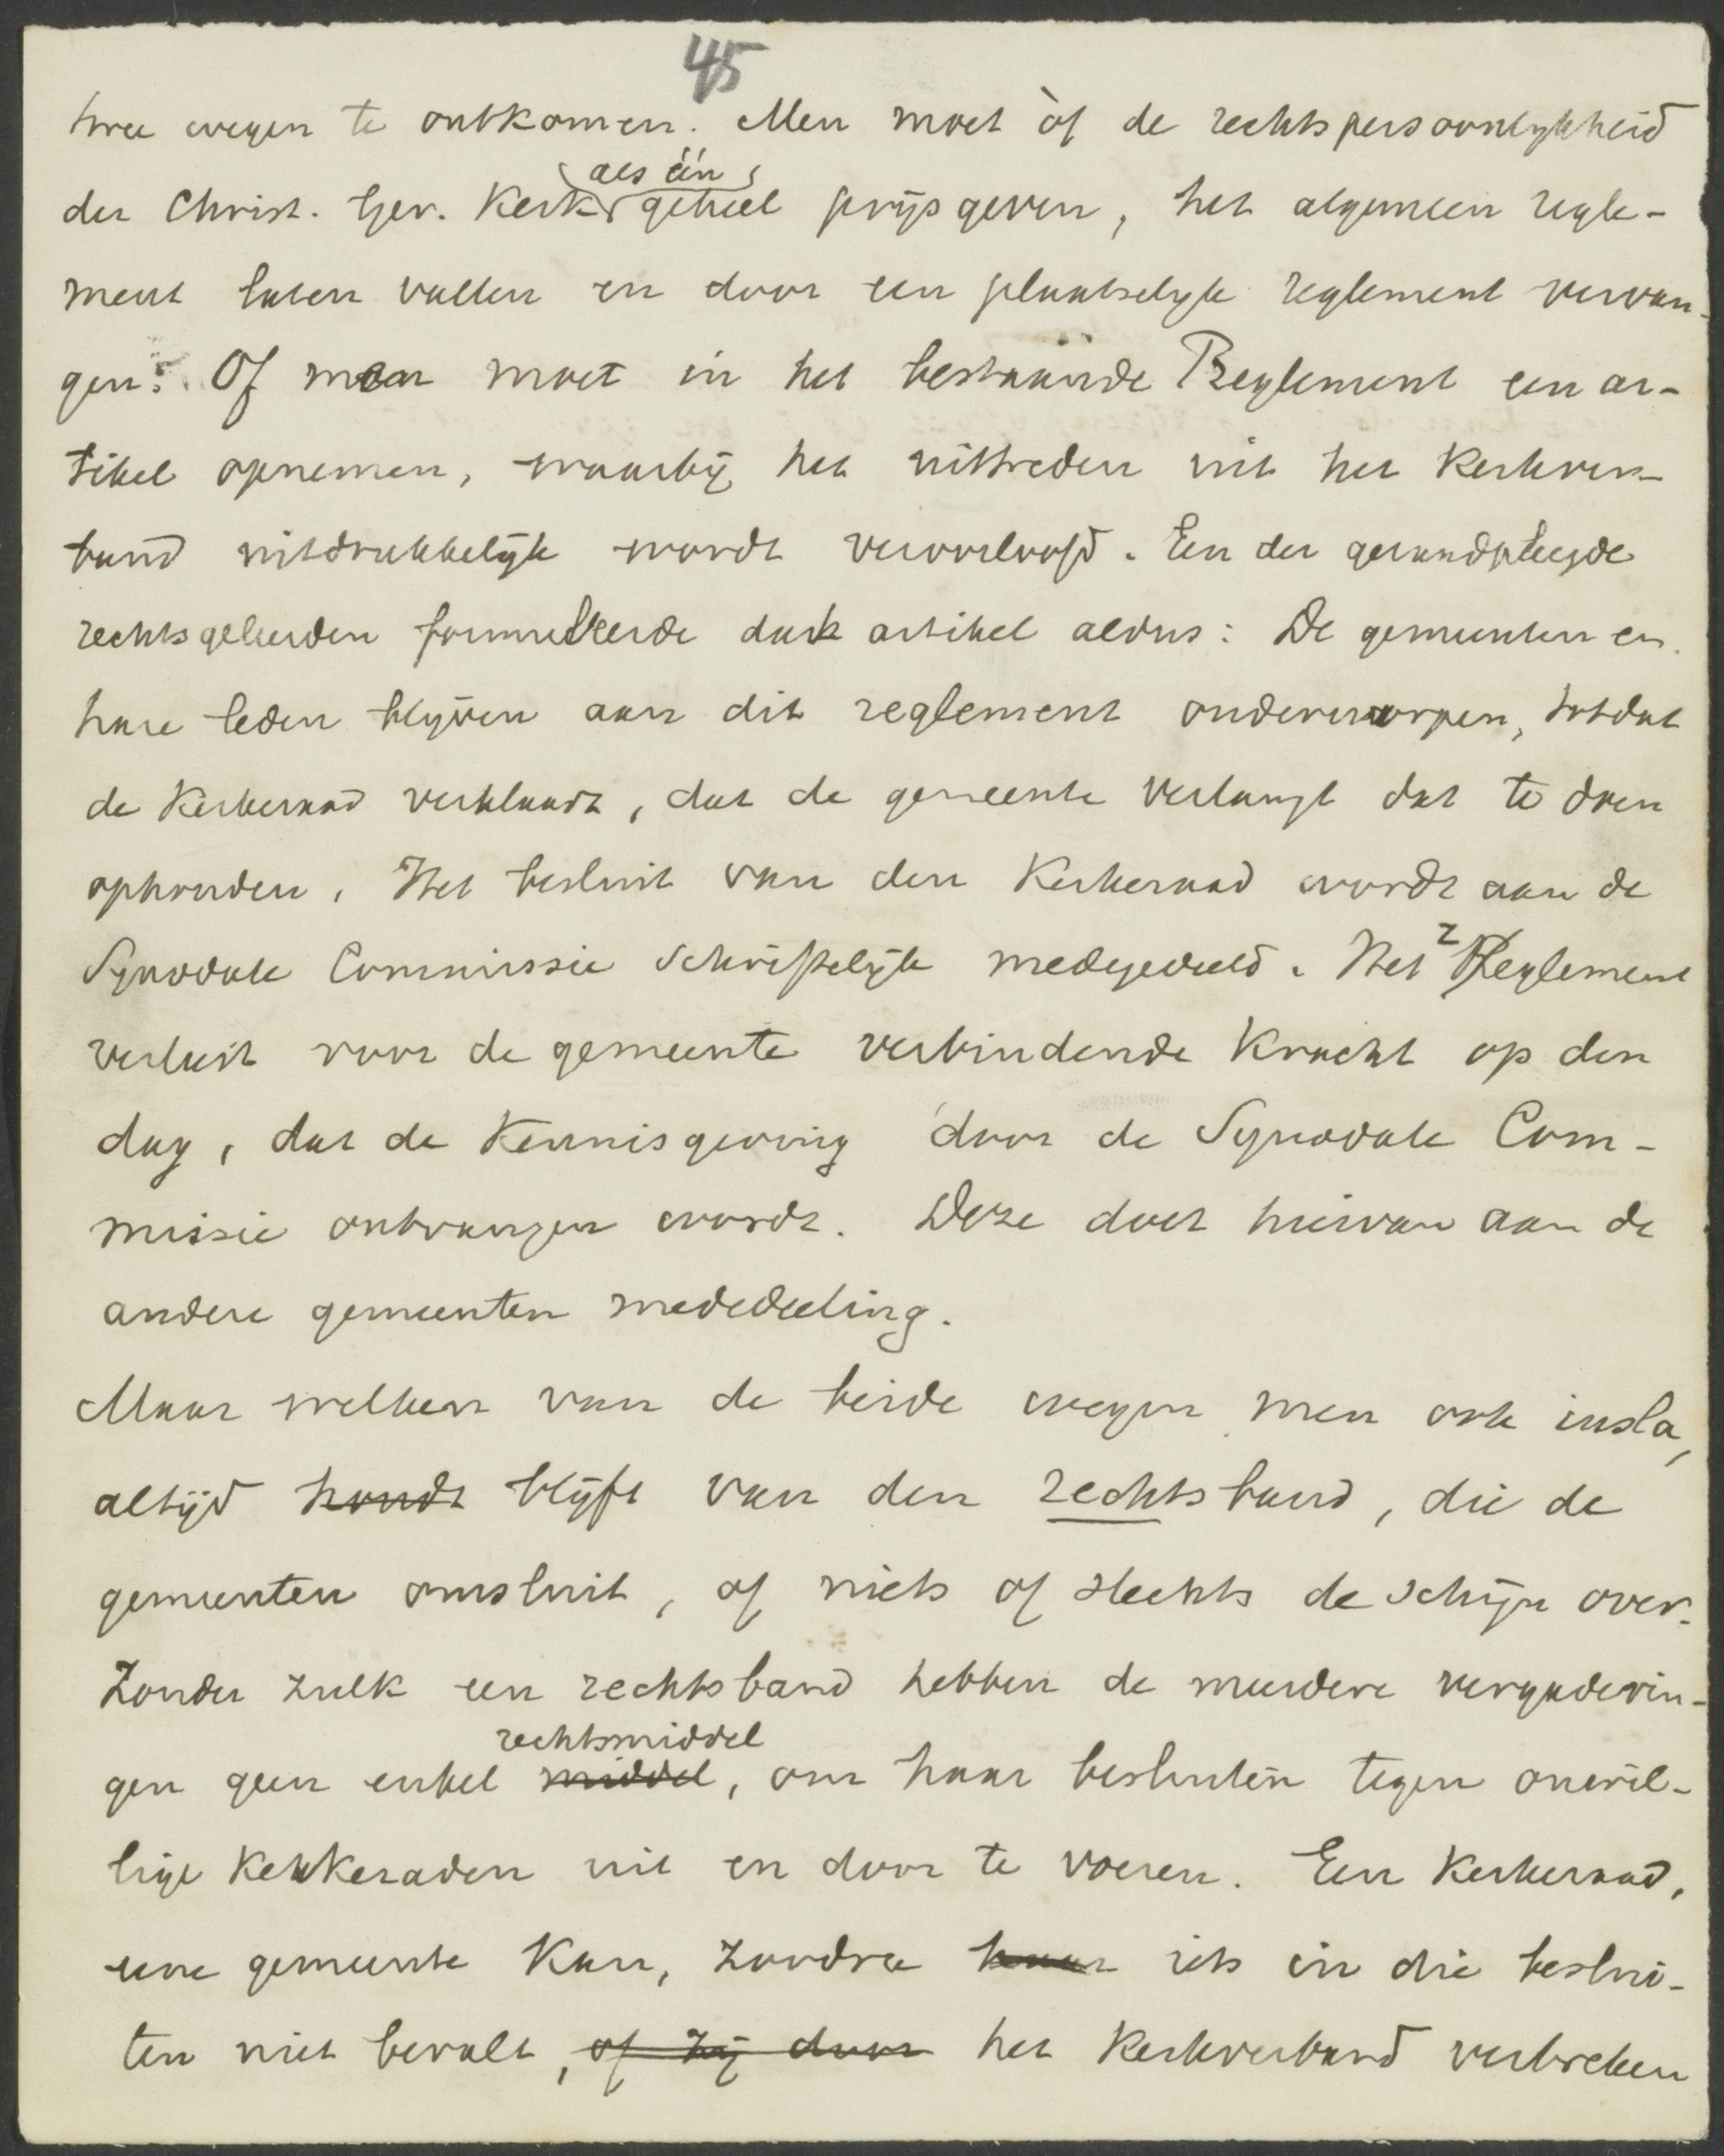 45
twee wegen te ontkomen. Men moet òf de rechtspersoonlykheid
der Christ. Ger. Kerk als één geheel prijsgeven, het algemeen regle-
ment laten vallen en door een plaatselyk reglement vervan-
gen. Of men moet in het bestaande Reglement een ar-
tikel opnemen, waarbij het uittreden uit het Kerkver-
band uitdrukkelijk wordt veroorloofd. Een der geraadpleegde
rechtsgeleerden formuleerde dat artikel aldus: De gemeenten en
hare leden blijven aan dit reglement onderworpen, totdat
de Kerkeraad verklaart, dat de gemeente verlangt dat te doen
ophouden. Het besluit van den Kerkeraad wordt aan de
Synodale Commissie schriftelijk medegedeeld. Het reglement
verliest voor de gemeente verbindende Kracht op den
dag, dat de Kennisgeving door de Synodale Com-
missie ontvangen wordt. Deze doet hiervan aan de
andere gemeenten mededeeling.
Maar welken van de beide wegen men ook insla,
altijd houdt blijft van den rechtsband, die de
gemeenten omsluit, of niets of slechts de schijn over.
Zonder zulk een rechtsband hebben de meerdere vergaderin-
rechtsmiddel
gen geen enkel middel, om haar besluiten tegen onwil-
lige Kerkeraden uit en door te voeren. Een Kerkeraad,
eene gemeente Kan, zoodra haar iets in die beslui-
ten niet bevalt, of zij door het Kerkverband verbreken